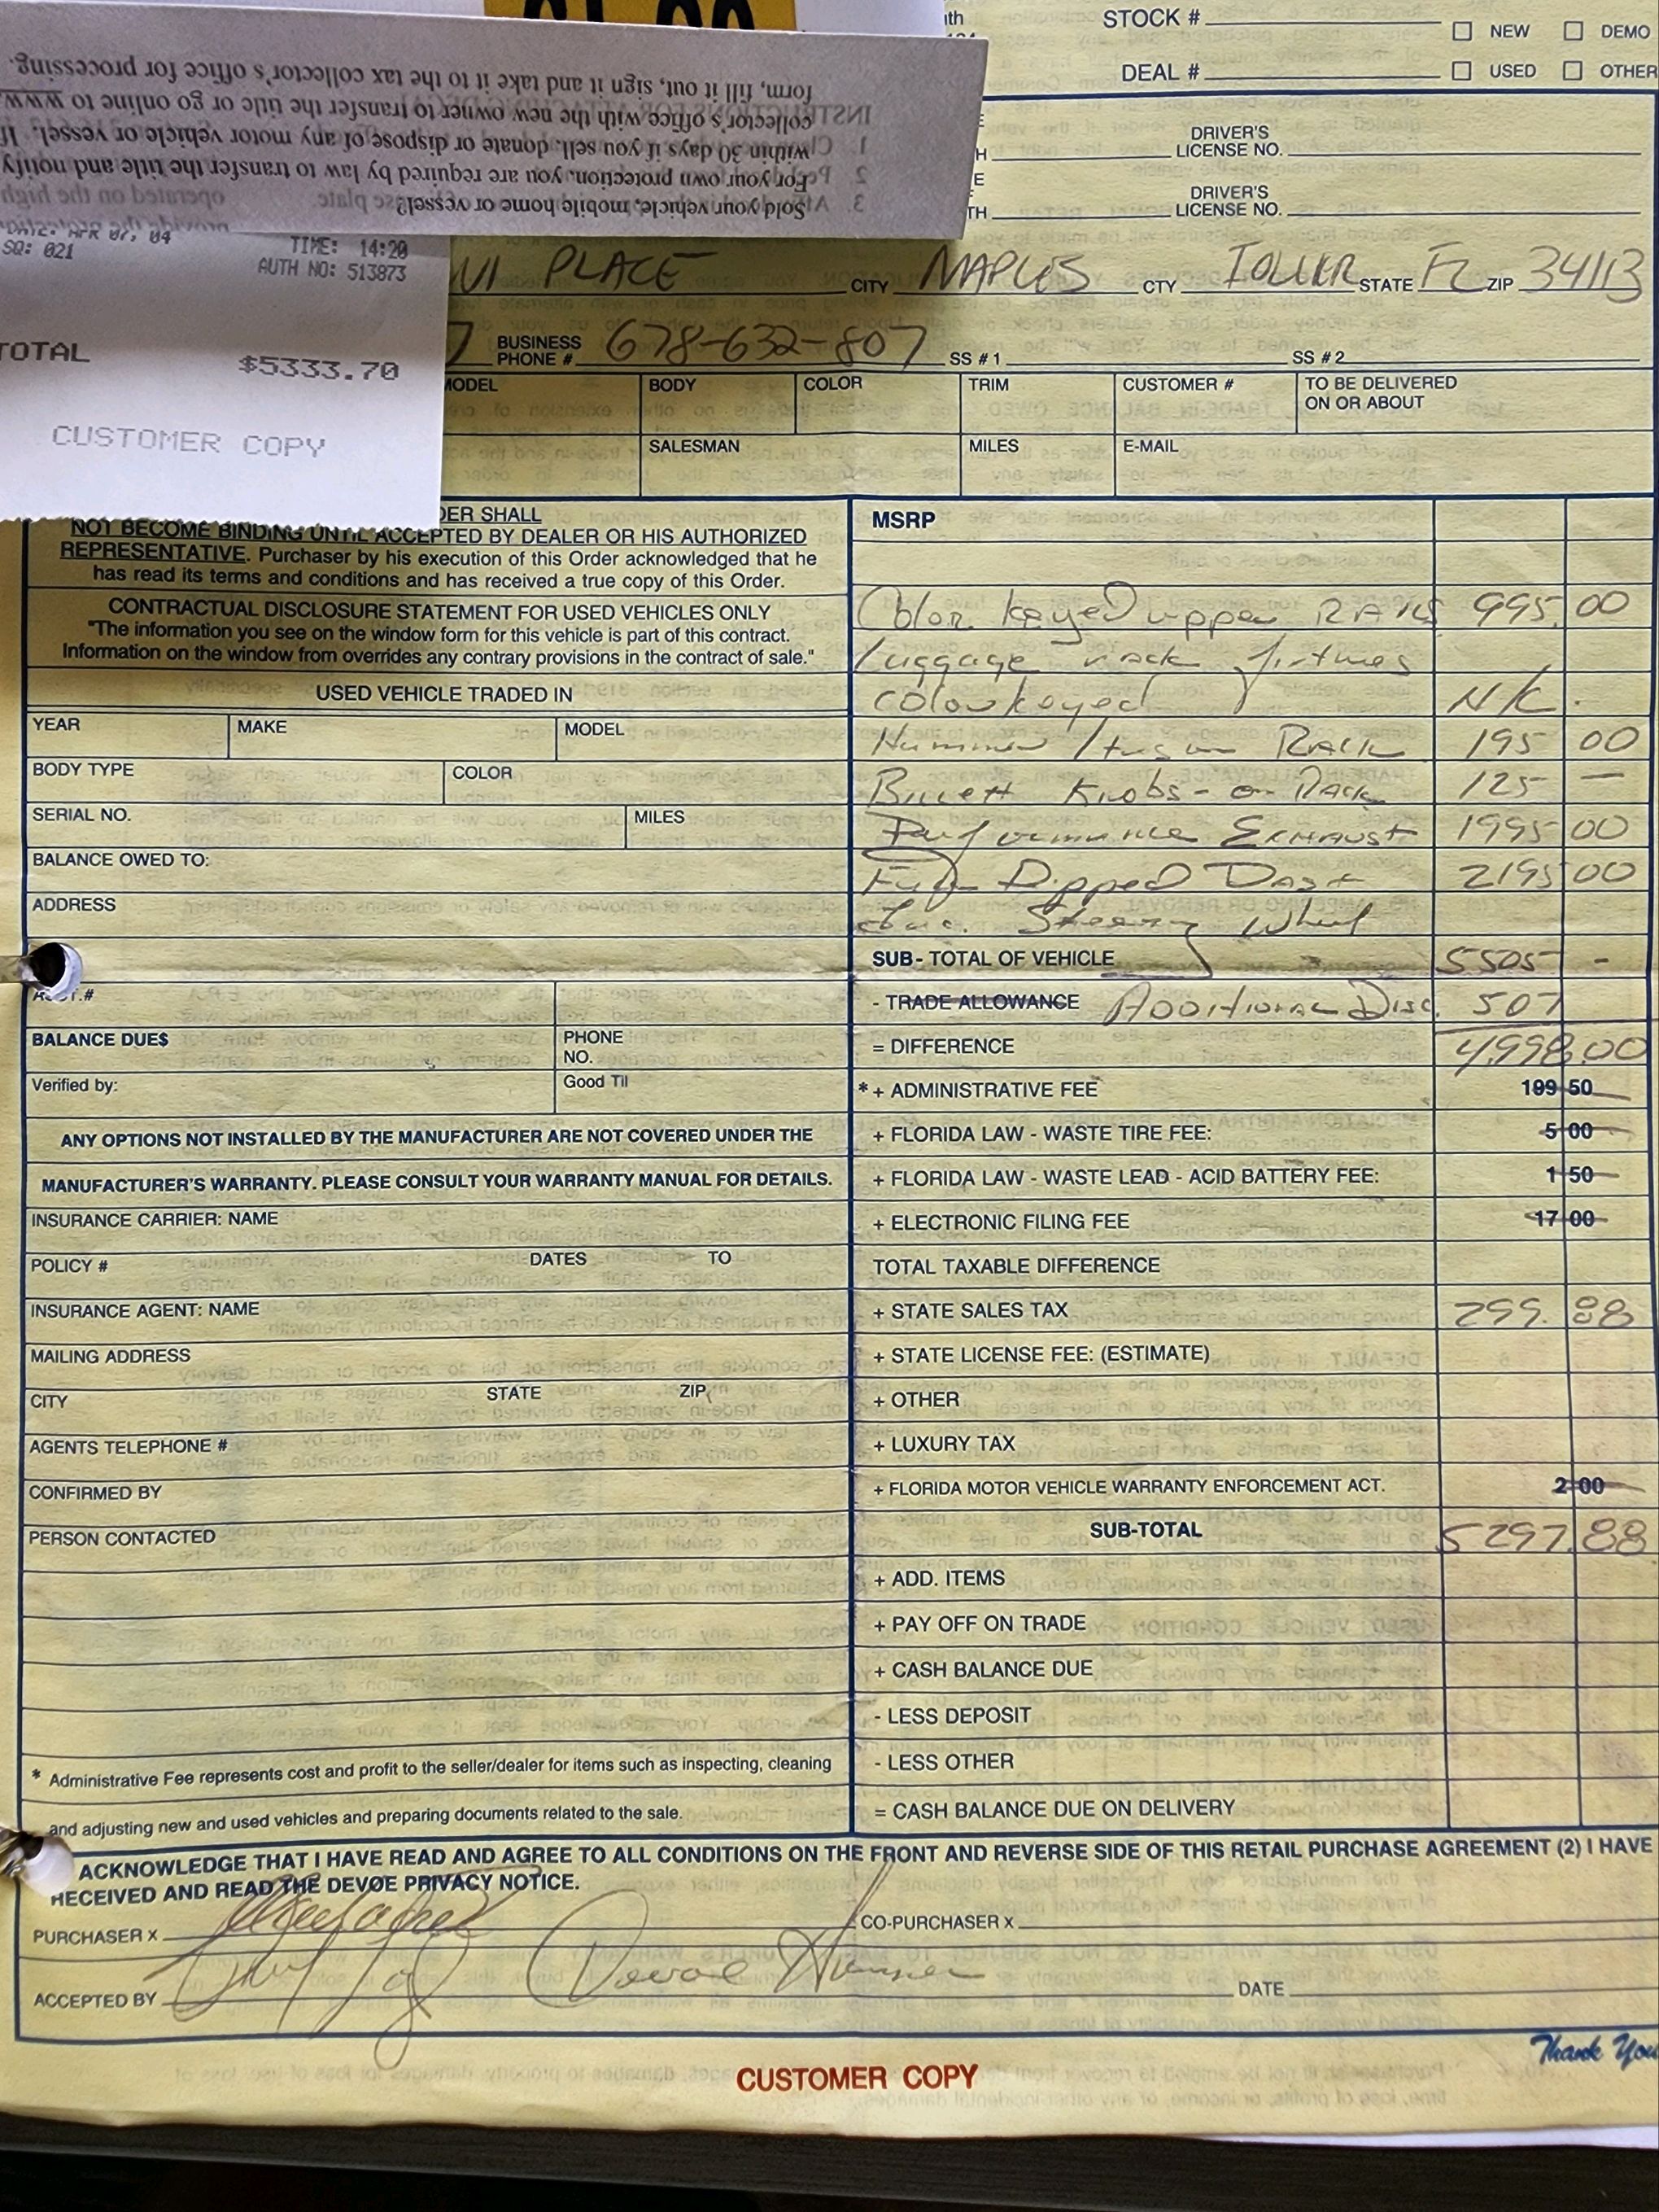 STOCK #
NEW
DEMO
DEAL #
USED
OTHER
Sold your vehicle, mobile home or vessel?
For your own protection, you are required by law to transfer the title and notify
within 30 days if you sell, donate or dispose of any motor vehicle or vessel. If
collector's office with the new owner to transfer the title or go online to www.
form, fill it out, sign it and take it to the tax collector's office for processing.
DRIVER'S
LICENSE NO.
DRIVER'S
LICENSE NO.
DATE: APR 07, 04
SQ: 021
TIME: 14:20
AUTH NO: 513873
TOTAL $5333.70
CUSTOMER COPY
PLACE CITY NAPLES CTY STATE FL ZIP 34113
BUSINESS
PHONE # 678-632-807 SS # 1 SS # 2
MODEL BODY COLOR TRIM CUSTOMER # TO BE DELIVERED
ON OR ABOUT
SALESMAN MILES E-MAIL
DER SHALL
NOT BECOME BINDING UNTIL ACCEPTED BY DEALER OR HIS AUTHORIZED
REPRESENTATIVE. Purchaser by his execution of this Order acknowledged that he
has read its terms and conditions and has received a true copy of this Order.
CONTRACTUAL DISCLOSURE STATEMENT FOR USED VEHICLES ONLY
"The information you see on the window form for this vehicle is part of this contract.
Information on the window from overrides any contrary provisions in the contract of sale."
USED VEHICLE TRADED IN
YEAR MAKE MODEL
BODY TYPE COLOR
SERIAL NO. MILES
BALANCE OWED TO:
ADDRESS
BALANCE DUE$ PHONE
NO.
Verified by: Good Til
ANY OPTIONS NOT INSTALLED BY THE MANUFACTURER ARE NOT COVERED UNDER THE
MANUFACTURER'S WARRANTY. PLEASE CONSULT YOUR WARRANTY MANUAL FOR DETAILS.
INSURANCE CARRIER: NAME
POLICY # DATES TO
INSURANCE AGENT: NAME
MAILING ADDRESS
CITY STATE ZIP
AGENTS TELEPHONE #
CONFIRMED BY
PERSON CONTACTED
* Administrative Fee represents cost and profit to the seller/dealer for items such as inspecting, cleaning
and adjusting new and used vehicles and preparing documents related to the sale.
MSRP
Color keyed upper RAILS 995.00
Luggage rack fixtures
color keyed N/C.
Hummer Rack 195 00
Billett Knobs - on Rack 125 —
Performance EXHAUST 1995 00
Dipped Dash 2195 00
Steering Wheel
SUB - TOTAL OF VEHICLE 5505 -
- TRADE ALLOWANCE Additional Disc. 507
= DIFFERENCE 4998.00
* + ADMINISTRATIVE FEE 199 50
+ FLORIDA LAW - WASTE TIRE FEE: 5 00
+ FLORIDA LAW - WASTE LEAD - ACID BATTERY FEE: 1 50
+ ELECTRONIC FILING FEE 17 00
TOTAL TAXABLE DIFFERENCE
+ STATE SALES TAX 299.88
+ STATE LICENSE FEE: (ESTIMATE)
+ OTHER
+ LUXURY TAX
+ FLORIDA MOTOR VEHICLE WARRANTY ENFORCEMENT ACT. 2 00
SUB-TOTAL 5297.88
+ ADD. ITEMS
+ PAY OFF ON TRADE
+ CASH BALANCE DUE
- LESS DEPOSIT
- LESS OTHER
= CASH BALANCE DUE ON DELIVERY
ACKNOWLEDGE THAT I HAVE READ AND AGREE TO ALL CONDITIONS ON THE FRONT AND REVERSE SIDE OF THIS RETAIL PURCHASE AGREEMENT (2) I HAVE
RECEIVED AND READ THE DEVOE PRIVACY NOTICE.
PURCHASER X CO-PURCHASER X
ACCEPTED BY Devoe Hummer DATE
Thank You
CUSTOMER COPY